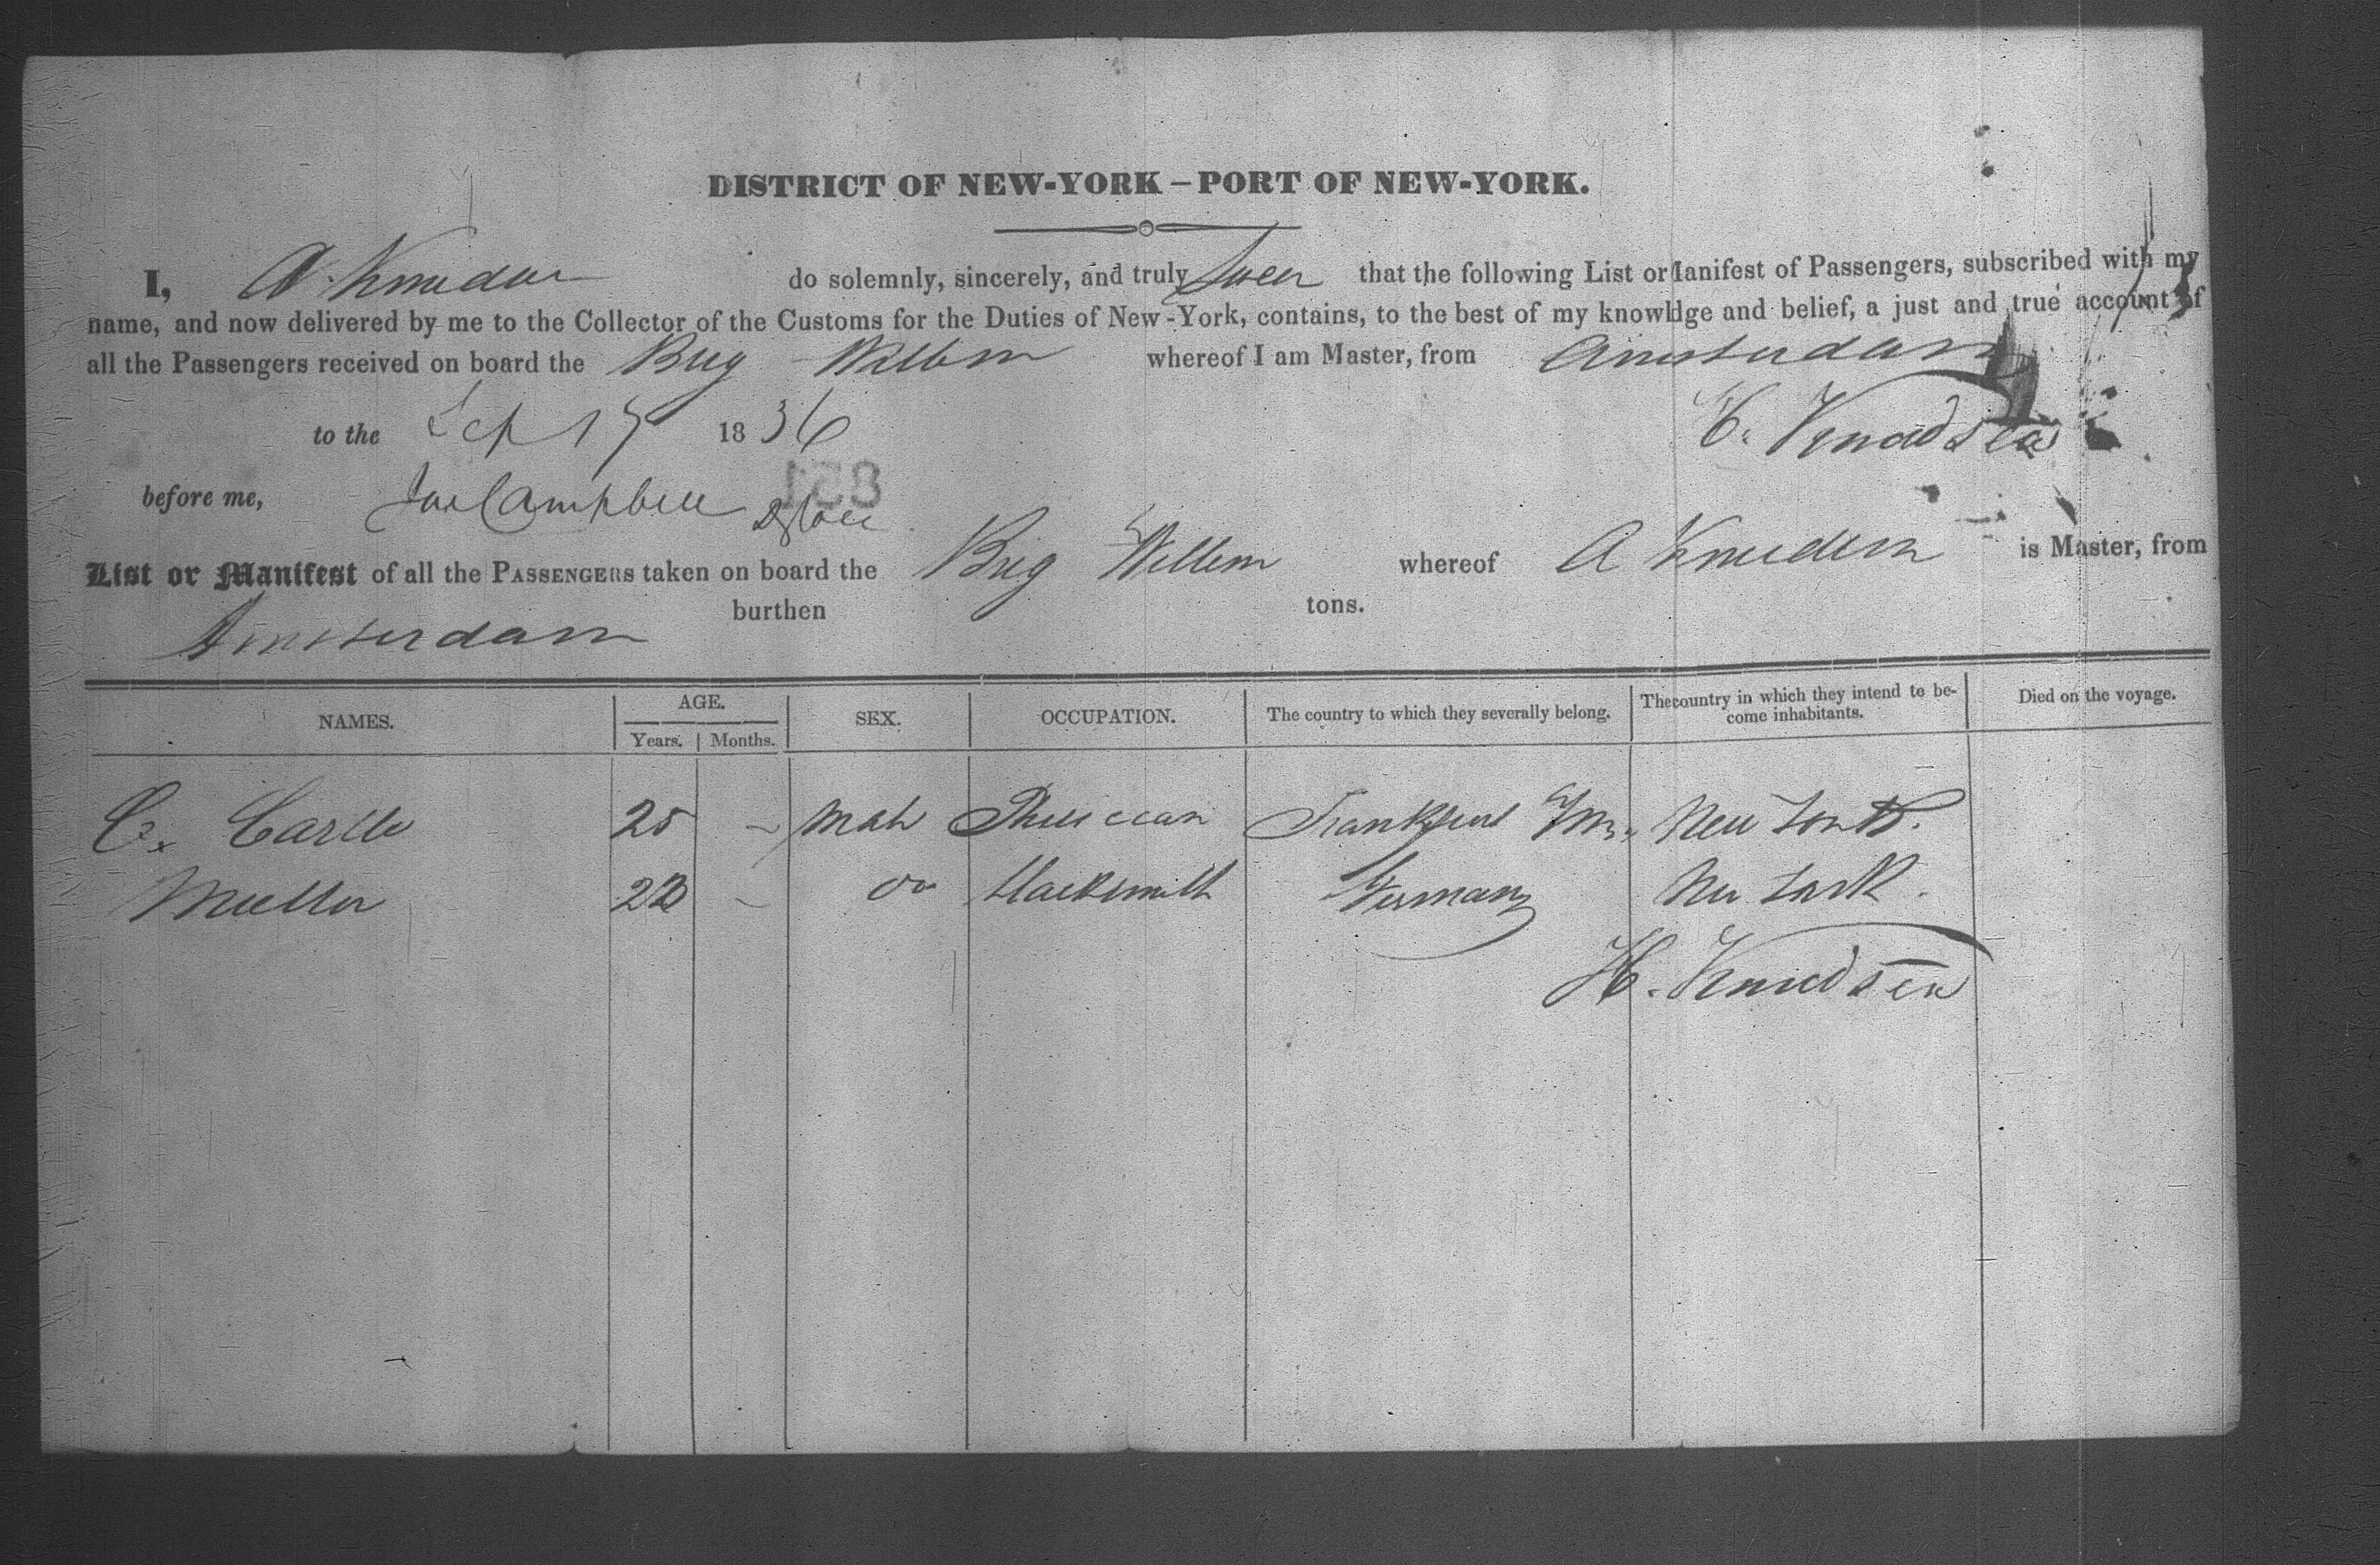 DISTRICT OF NEW-YORK – PORT OF NEW-YORK.
I, A Knudsen do solemnly, sincerely, and truly Swear that the following List or Manifest of Passengers, subscribed with my
name, and now delivered by me to the Collector of the Customs for the Duties of New-York, contains, to the best of my knowldge and belief, a just and true account of
all the Passengers received on board the Brig Willem whereof I am Master, from Amsterdam
to the Sep 1836 Knudsen
before me, Campbell
List or Manifest of all the PASSENGERS taken on board the Brig Willem whereof A Knudsen is Master, from
Amsterdam burthen tons.
NAMES. AGE. Years. Months. SEX. OCCUPATION. The country to which they severally belong. The country in which they intend to become inhabitants. Died on the voyage.
C. Carlle 25 - Male Phisician Frankfurt New York.
Muller - do blacksmith Germany New York.
H. Knudsen